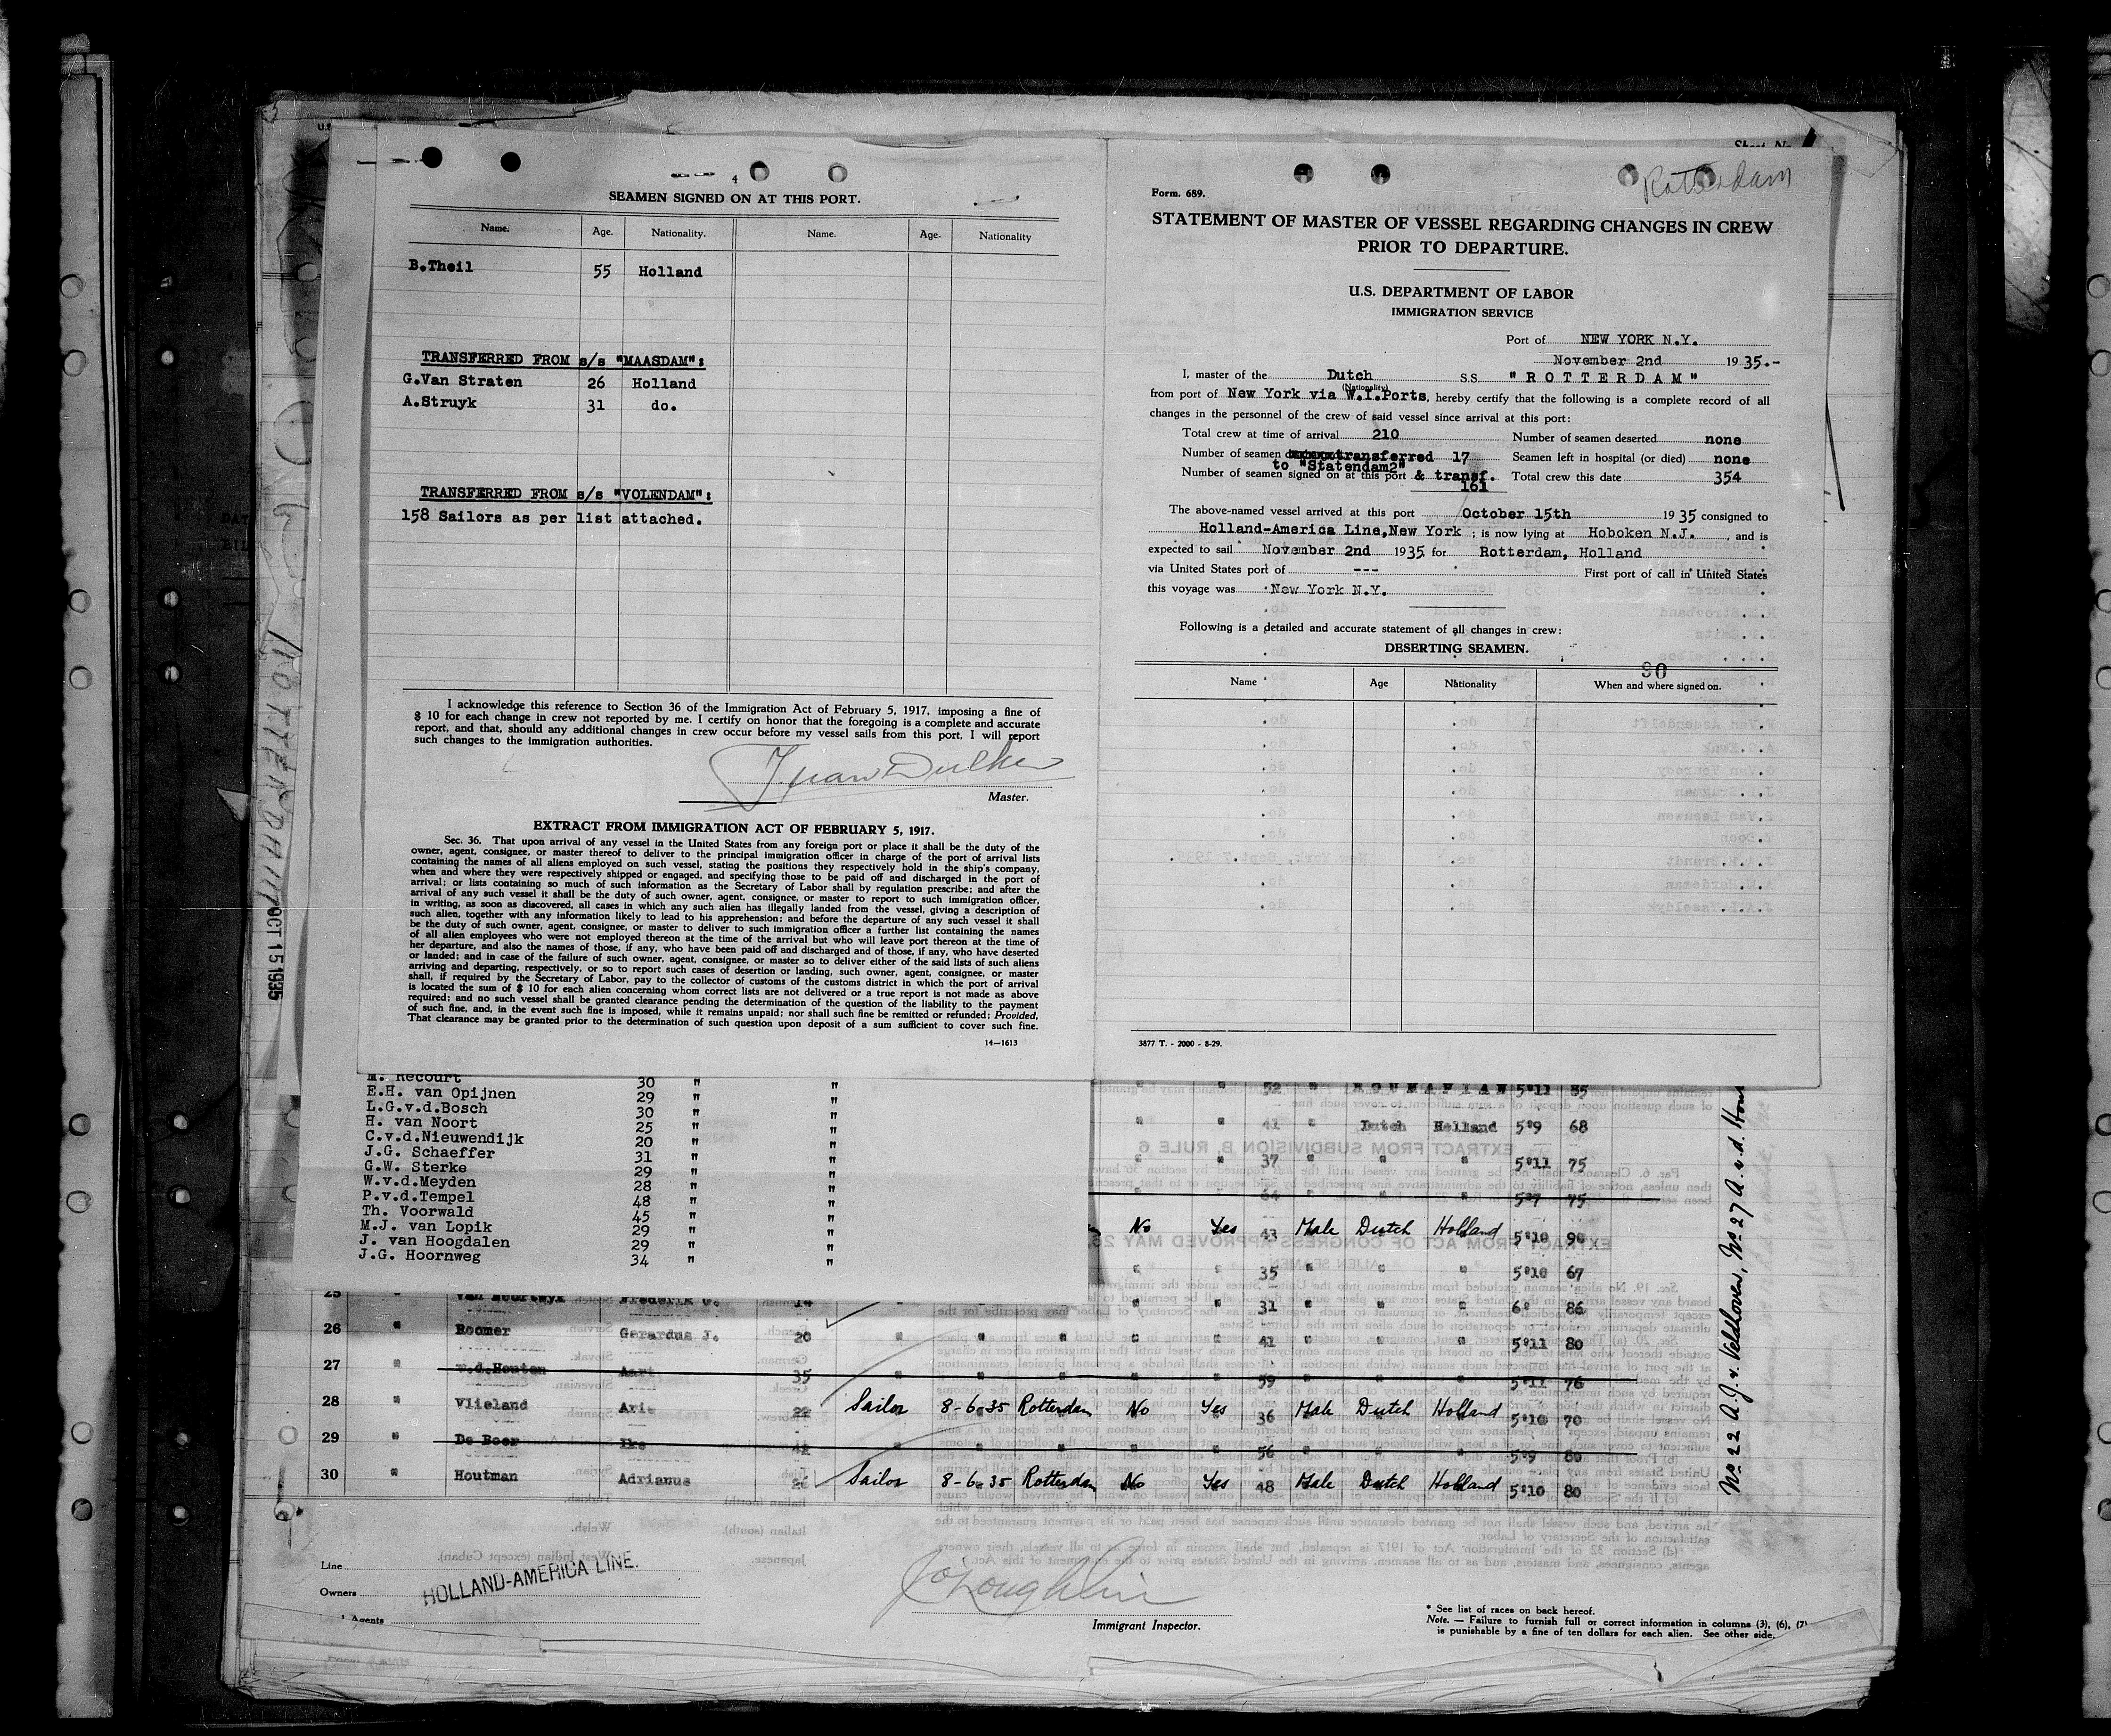 4
SEAMEN SIGNED ON AT THIS PORT.
Name. Age. Nationality. Name. Age. Nationality
B.Theil 55 Holland
TRANSFERRED FROM s/s "MAASDAM":
G.Van Straten 26 Holland
A.Struyk 31 do.
TRANSFERRED FROM s/s "VOLENDAM":
158 Sailors as per list attached.
I acknowledge this reference to Section 36 of the Immigration Act of February 5, 1917, imposing a fine of
$ 10 for each change in crew not reported by me. I certify on honor that the foregoing is a complete and accurate
report, and that, should any additional changes in crew occur before my vessel sails from this port, I will report
such changes to the immigration authorities.
Master.
EXTRACT FROM IMMIGRATION ACT OF FEBRUARY 5, 1917.
Sec. 36. That upon arrival of any vessel in the United States from any foreign port or place it shall be the duty of the
owner, agent, consignee, or master thereof to deliver to the principal immigration officer in charge of the port of arrival lists
containing the names of all aliens employed on such vessel, stating the positions they respectively hold in the ship's company,
when and where they were respectively shipped or engaged, and specifying those to be paid off and discharged in the port of
arrival; or lists containing so much of such information as the Secretary of Labor shall by regulation prescribe; and after the
arrival of any such vessel it shall be the duty of such owner, agent, consignee, or master to report to such immigration officer,
in writing, as soon as discovered, all cases in which any such alien has illegally landed from the vessel, giving a description of
such alien, together with any information likely to lead to his apprehension; and before the departure of any such vessel it shall
be the duty of such owner, agent, consignee, or master to deliver to such immigration officer a further list containing the names
of all alien employees who were not employed thereon at the time of the arrival but who will leave port thereon at the time of
her departure, and also the names of those, if any, who have been paid off and discharged and of those, if any, who have deserted
or landed; and in case of the failure of such owner, agent, consignee, or master so to deliver either of the said lists of such aliens
arriving and departing, respectively, or so to report such cases of desertion or landing, such owner, agent, consignee, or master
shall, if required by the Secretary of Labor, pay to the collector of customs of the customs district in which the port of arrival
is located the sum of $ 10 for each alien concerning whom correct lists are not delivered or a true report is not made as above
required; and no such vessel shall be granted clearance pending the determination of the question of the liability to the payment
of such fine, and, in the event such fine is imposed, while it remains unpaid; nor shall such fine be remitted or refunded: Provided,
That clearance may be granted prior to the determination of such question upon deposit of a sum sufficient to cover such fine.
14—1613
Rotterdam
Form. 689.
STATEMENT OF MASTER OF VESSEL REGARDING CHANGES IN CREW
PRIOR TO DEPARTURE.
U.S. DEPARTMENT OF LABOR
IMMIGRATION SERVICE
Port of NEW YORK N.Y.
November 2nd 1935.-
I, master of the Dutch S.S. "ROTTERDAM"
(Nationality)
from port of New York via W.I.Ports, hereby certify that the following is a complete record of all
changes in the personnel of the crew of said vessel since arrival at this port:
Total crew at time of arrival 210 Number of seamen deserted none
Number of seamen transferred 17 Seamen left in hospital (or died) none
to "Statendam2"
Number of seamen signed on at this port & transf. Total crew this date 354
161
The above-named vessel arrived at this port October 15th 1935 consigned to
Holland-America Line,New York ; is now lying at Hoboken N.J. , and is
expected to sail November 2nd 1935 for Rotterdam, Holland
via United States port of --- First port of call in United States
this voyage was New York N.Y.
Following is a detailed and accurate statement of all changes in crew:
DESERTING SEAMEN.
90
Name Age Nationality When and where signed on.
3877 T. - 2000 - 8-29.
Sheet No.
OCT 15 1935
M. Recourt 30 " "
E.H. van Opijnen 29 " "
L.G.v.d.Bosch 30 " "
H. van Noort 25 " "
C.v.d.Nieuwendijk 20 " "
J.G. Schaeffer 31 " "
G.W. Sterke 29 " "
W.v.d.Meyden 28 " "
P.v.d.Tempel 48 " "
Th. Voorwald 45 " "
M.J. van Lopik 29 " "
J. van Hoogdalen 29 " "
J.G. Hoornweg 34 " "
" " 52 " ROUMANIAN 5"11 85
" " 41 " Dutch Holland 5"9 68
" " 37 " " " 5"11 75
" " 64 " " " 5"7 75
No Yes 43 Male Dutch Holland 5"10 90
" " 35 " " " 5"10 67
25 " Van Noortwyk Frederik G. 14 " " 31 " " " 6" 86
26 " Roomer Gerardus J. 20 " " " " " 41 " " " 5"11 80
27 " v.d.Houten Aart 35 " " " " " 59 " " " 5"11 76
28 " Vlieland Arie 22 Sailor 8-6-35 Rotterdam No Yes 36 Male Dutch Holland 5"10 70
29 " De Boer Eke 41 " " " " " 56 " " " 5"9 80
30 " Houtman Adrianus 26 Sailor 8-6-35 Rotterdam No Yes 48 Male Dutch Holland 5"10 80
No 22 A.J. v. Veldhoven, No 27 A. v.d. Hout
Line
HOLLAND-AMERICA LINE.
Owners
Agents
JO'Loughlin
Immigrant Inspector.
* See list of races on back hereof.
Note. — Failure to furnish full or correct information in columns (3), (6), (7)
is punishable by a fine of ten dollars for each alien. See other side.